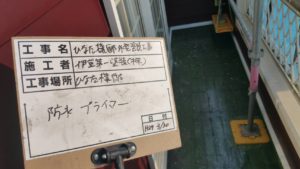 工事名 ひなた様邸 外壁塗装工事
施工者 伊豆第一塗装(株)
工事場所 ひなた様邸
防水 プライマー
日付